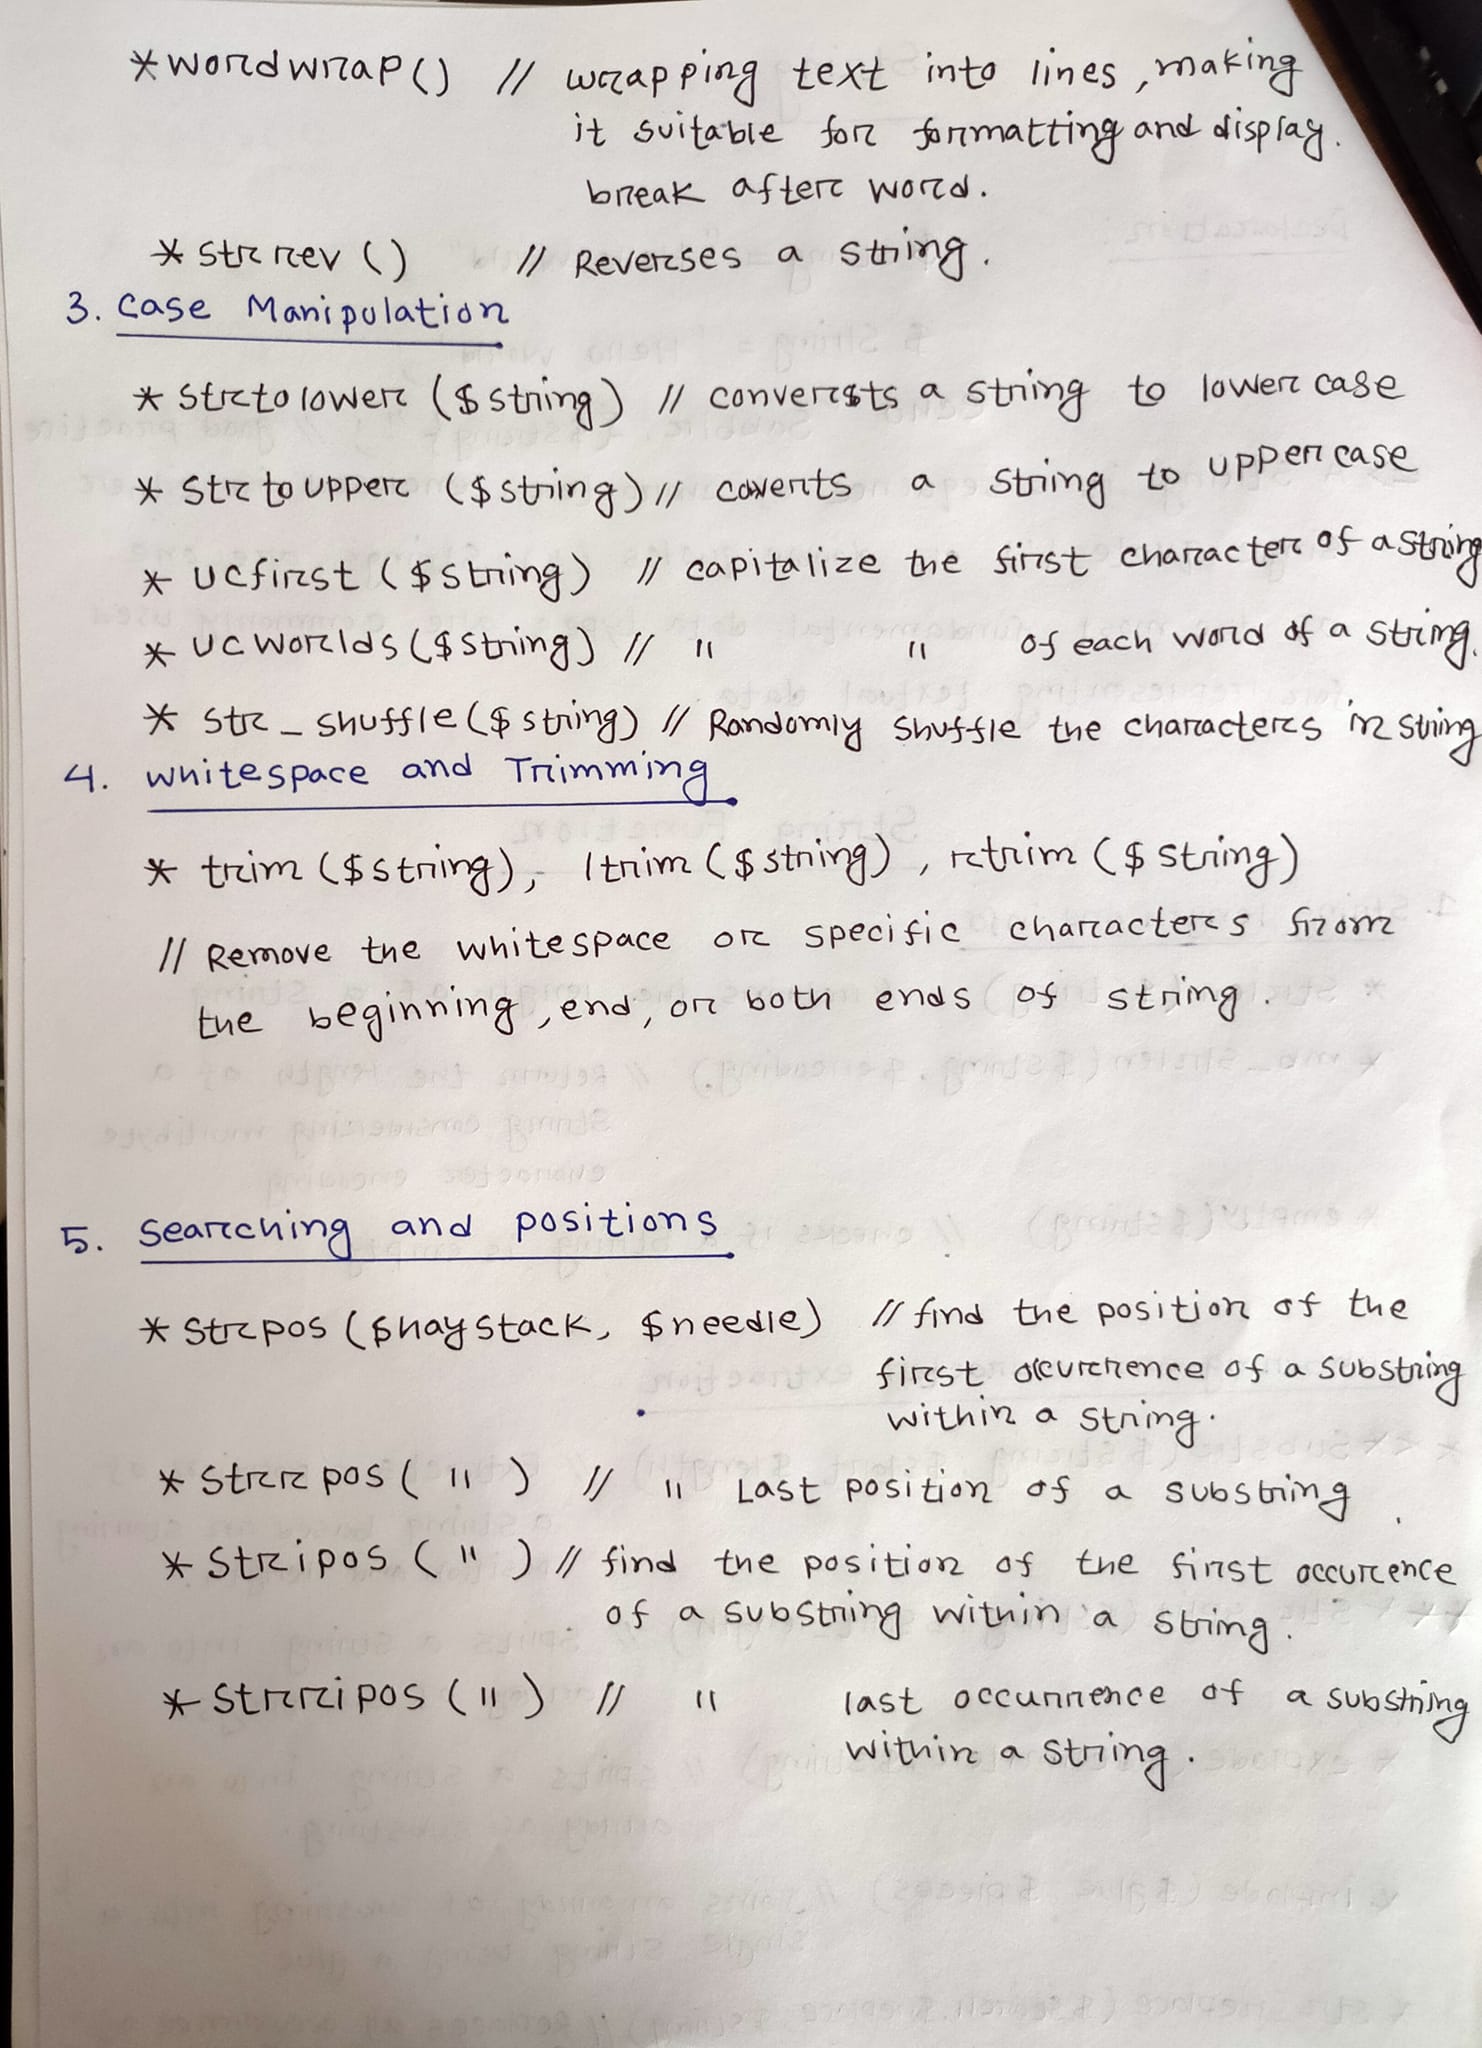 * wordwrap() // wrapping text into lines, making
it suitable for formatting and display.
break after word.
* strrev () // Reverses a string.
3. Case Manipulation
* strtolower ($string) // converts a string to lower case
* strtoupper ($string) // coverts a string to uppercase
* ucfirst ($string) // capitalize the first character of a string
* ucworlds ($string) // " " of each word of a string.
* str_shuffle ($string) // Randomly shuffle the characters in string
4. whitespace and Trimming
* trim ($string), ltrim ($string), rtrim ($string)
// Remove the whitespace or specific characters from
the beginning, end, or both ends of string.
5. Searching and positions
* strpos ($haystack, $needle) // find the position of the
first occurrence of a substring
within a string.
* strrpos ( " ) // " Last position of a substring
* stripos ( " ) // find the position of the first occurence
of a substring within a string.
* strripos ( " ) // " last occurrence of a substring
within a string.